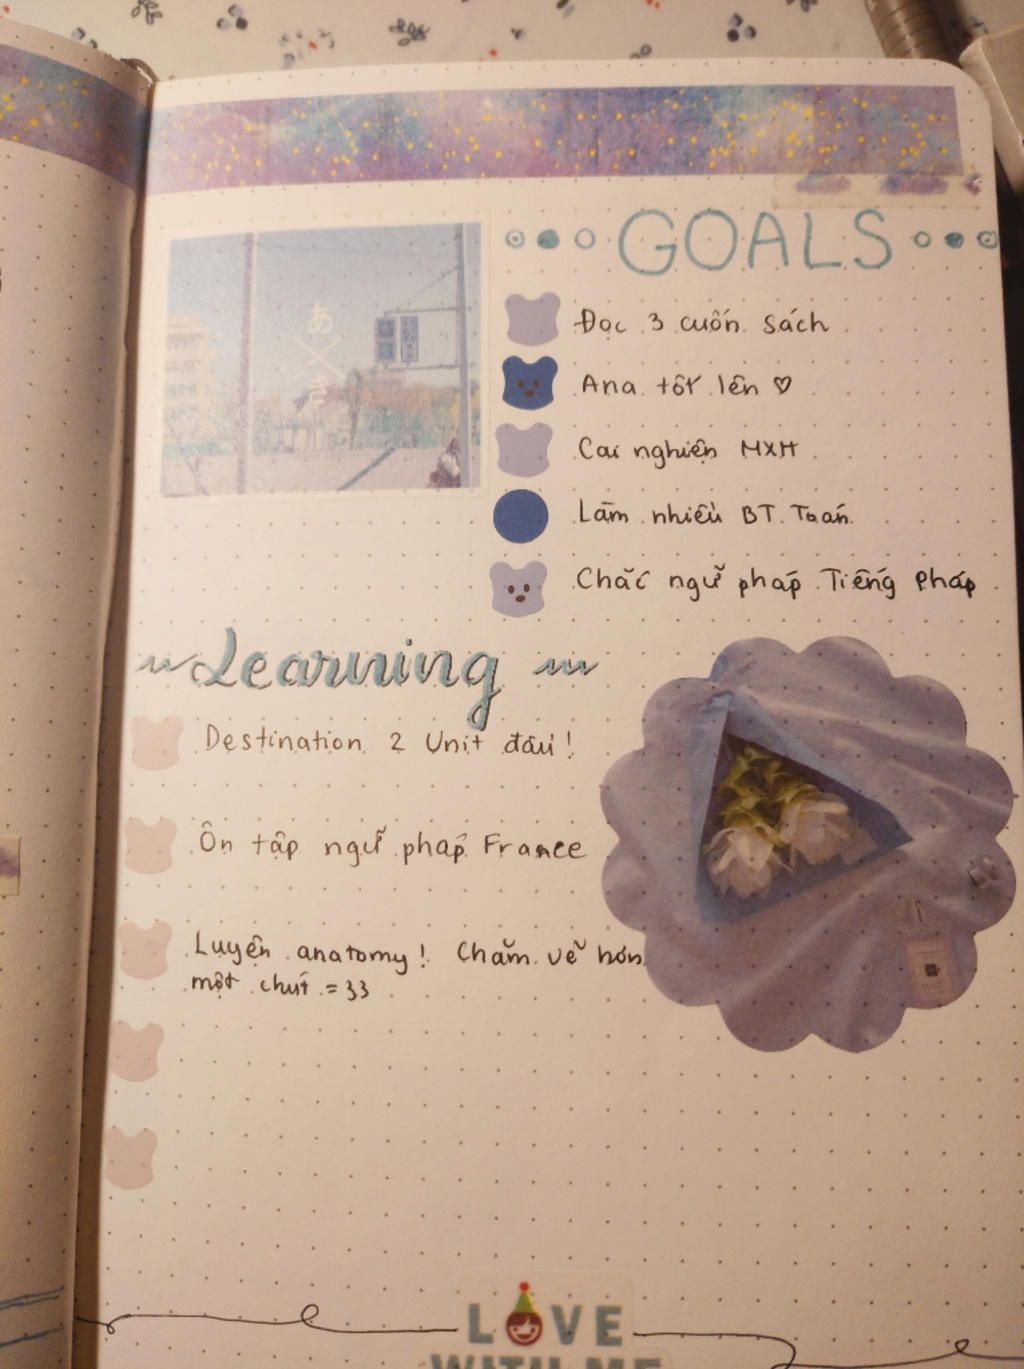 あ
き
GOALS
Đọc 3 cuốn sách
Ana tốt lên ♡
Cai nghiện MXH
Làm nhiều BT Toán
Chắc ngữ pháp Tiếng Pháp
Learning
Destination 2 Unit đầu!
Ôn tập ngữ pháp France
Luyện anatomy! Chăm vẽ hơn
một chút =33
LOVE
WITH ME